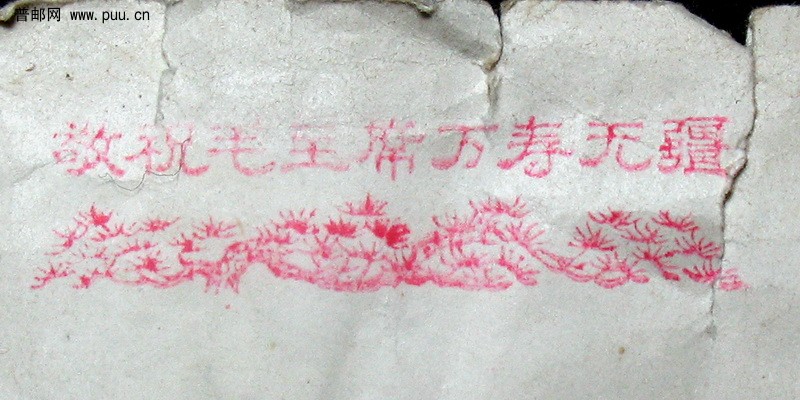 普邮网 www.puu.cn
敬祝毛主席万寿无疆